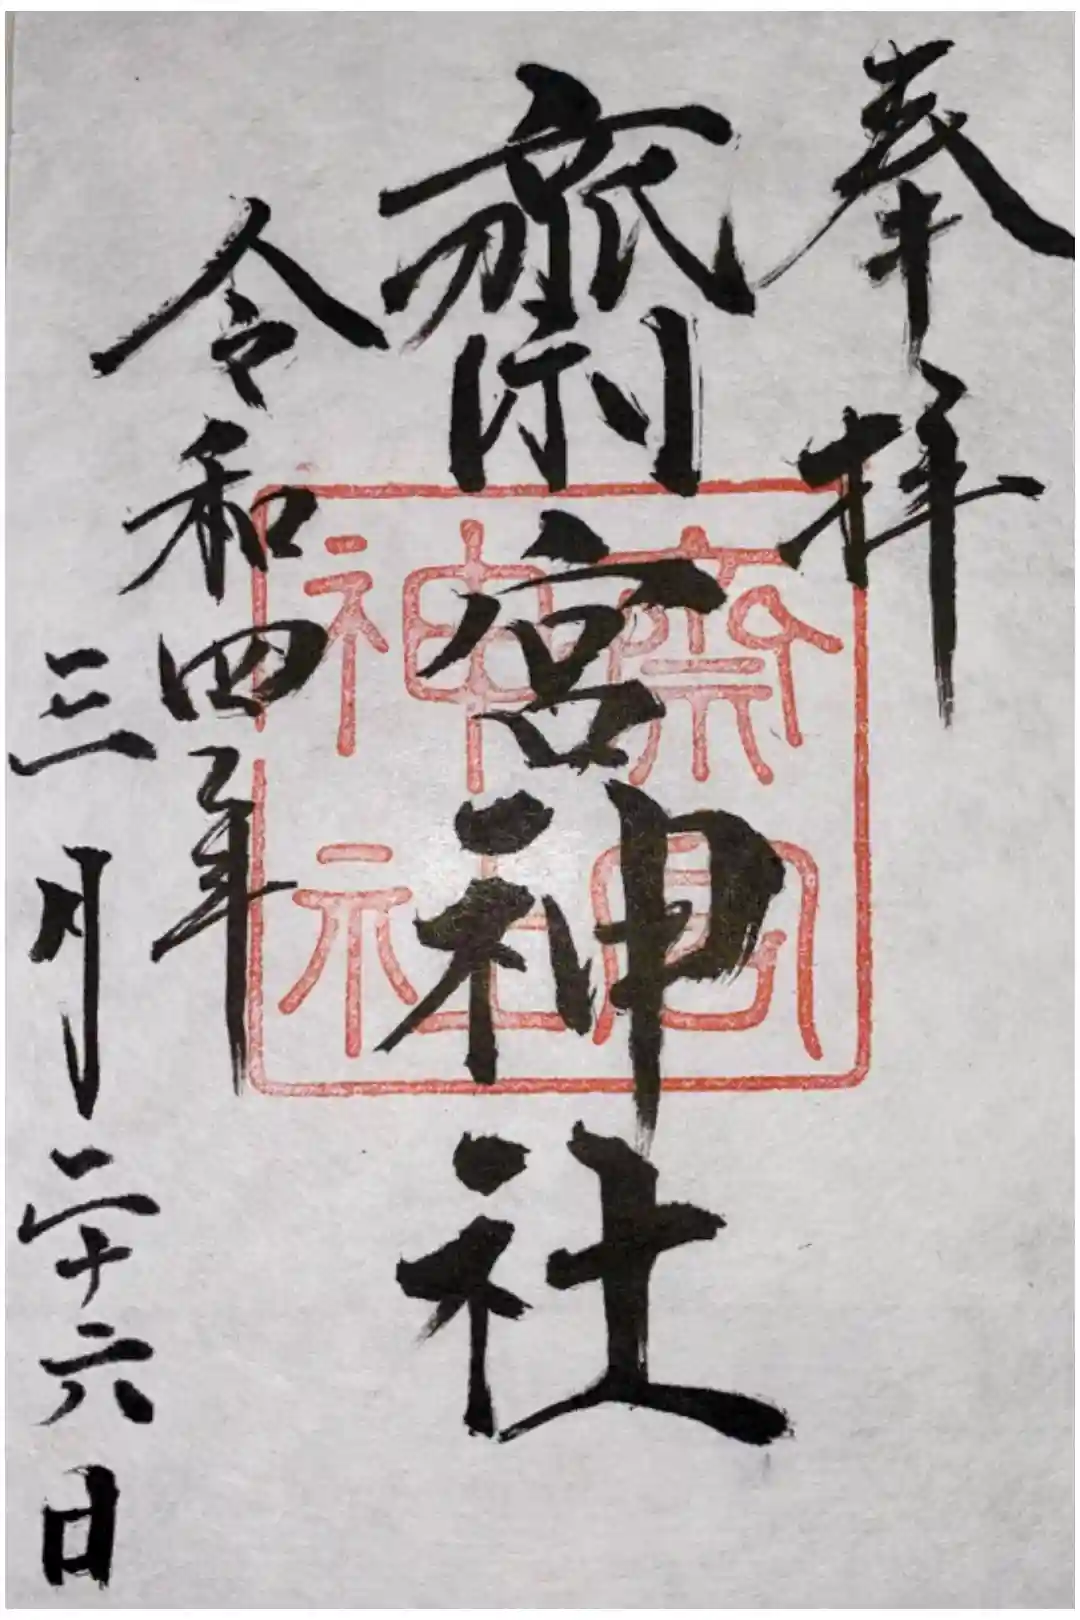 奉拝
齋宮神社
令和四年
三月二十六日
齋宮
神社